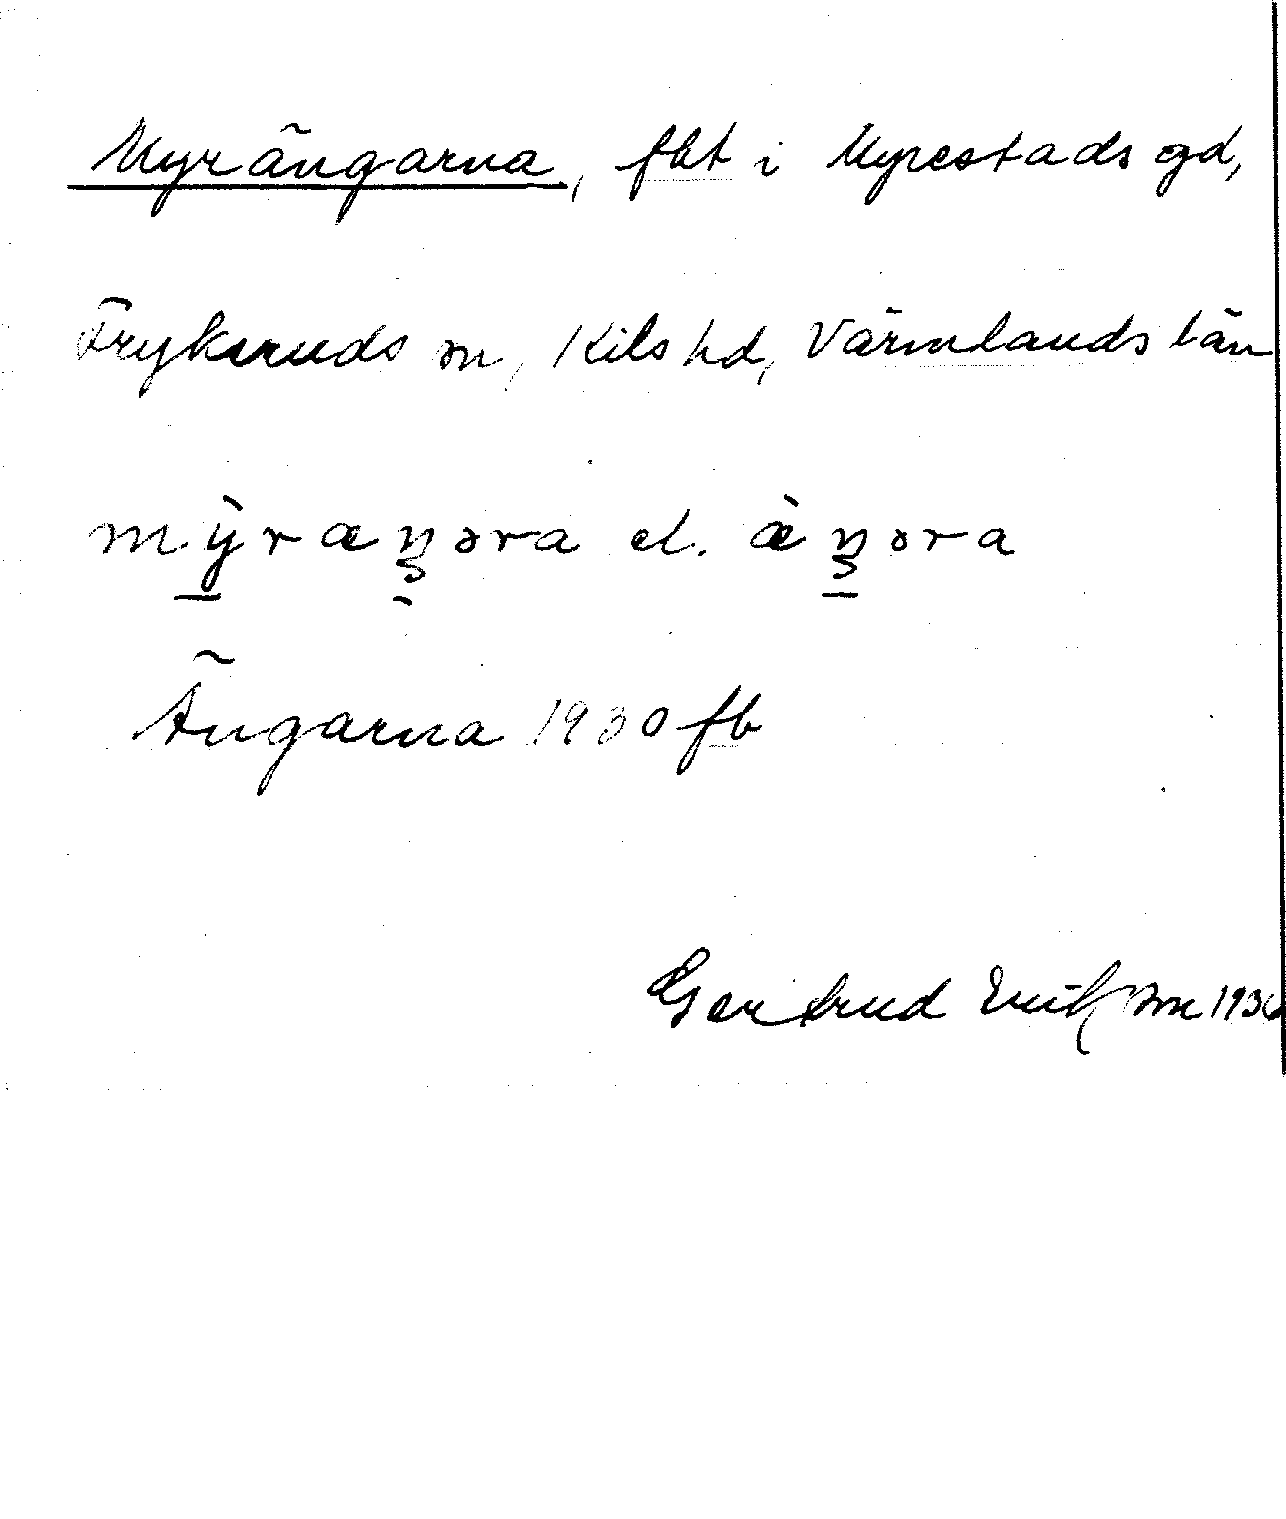 Myrängarna, fbt i Myrestads egd,
Frykeruds sn, Kils hd, Värmlands län
mỳraŋəra el. æ̀ŋəra
Ängarna 1930 fb
Gertrud Ericsson 1930